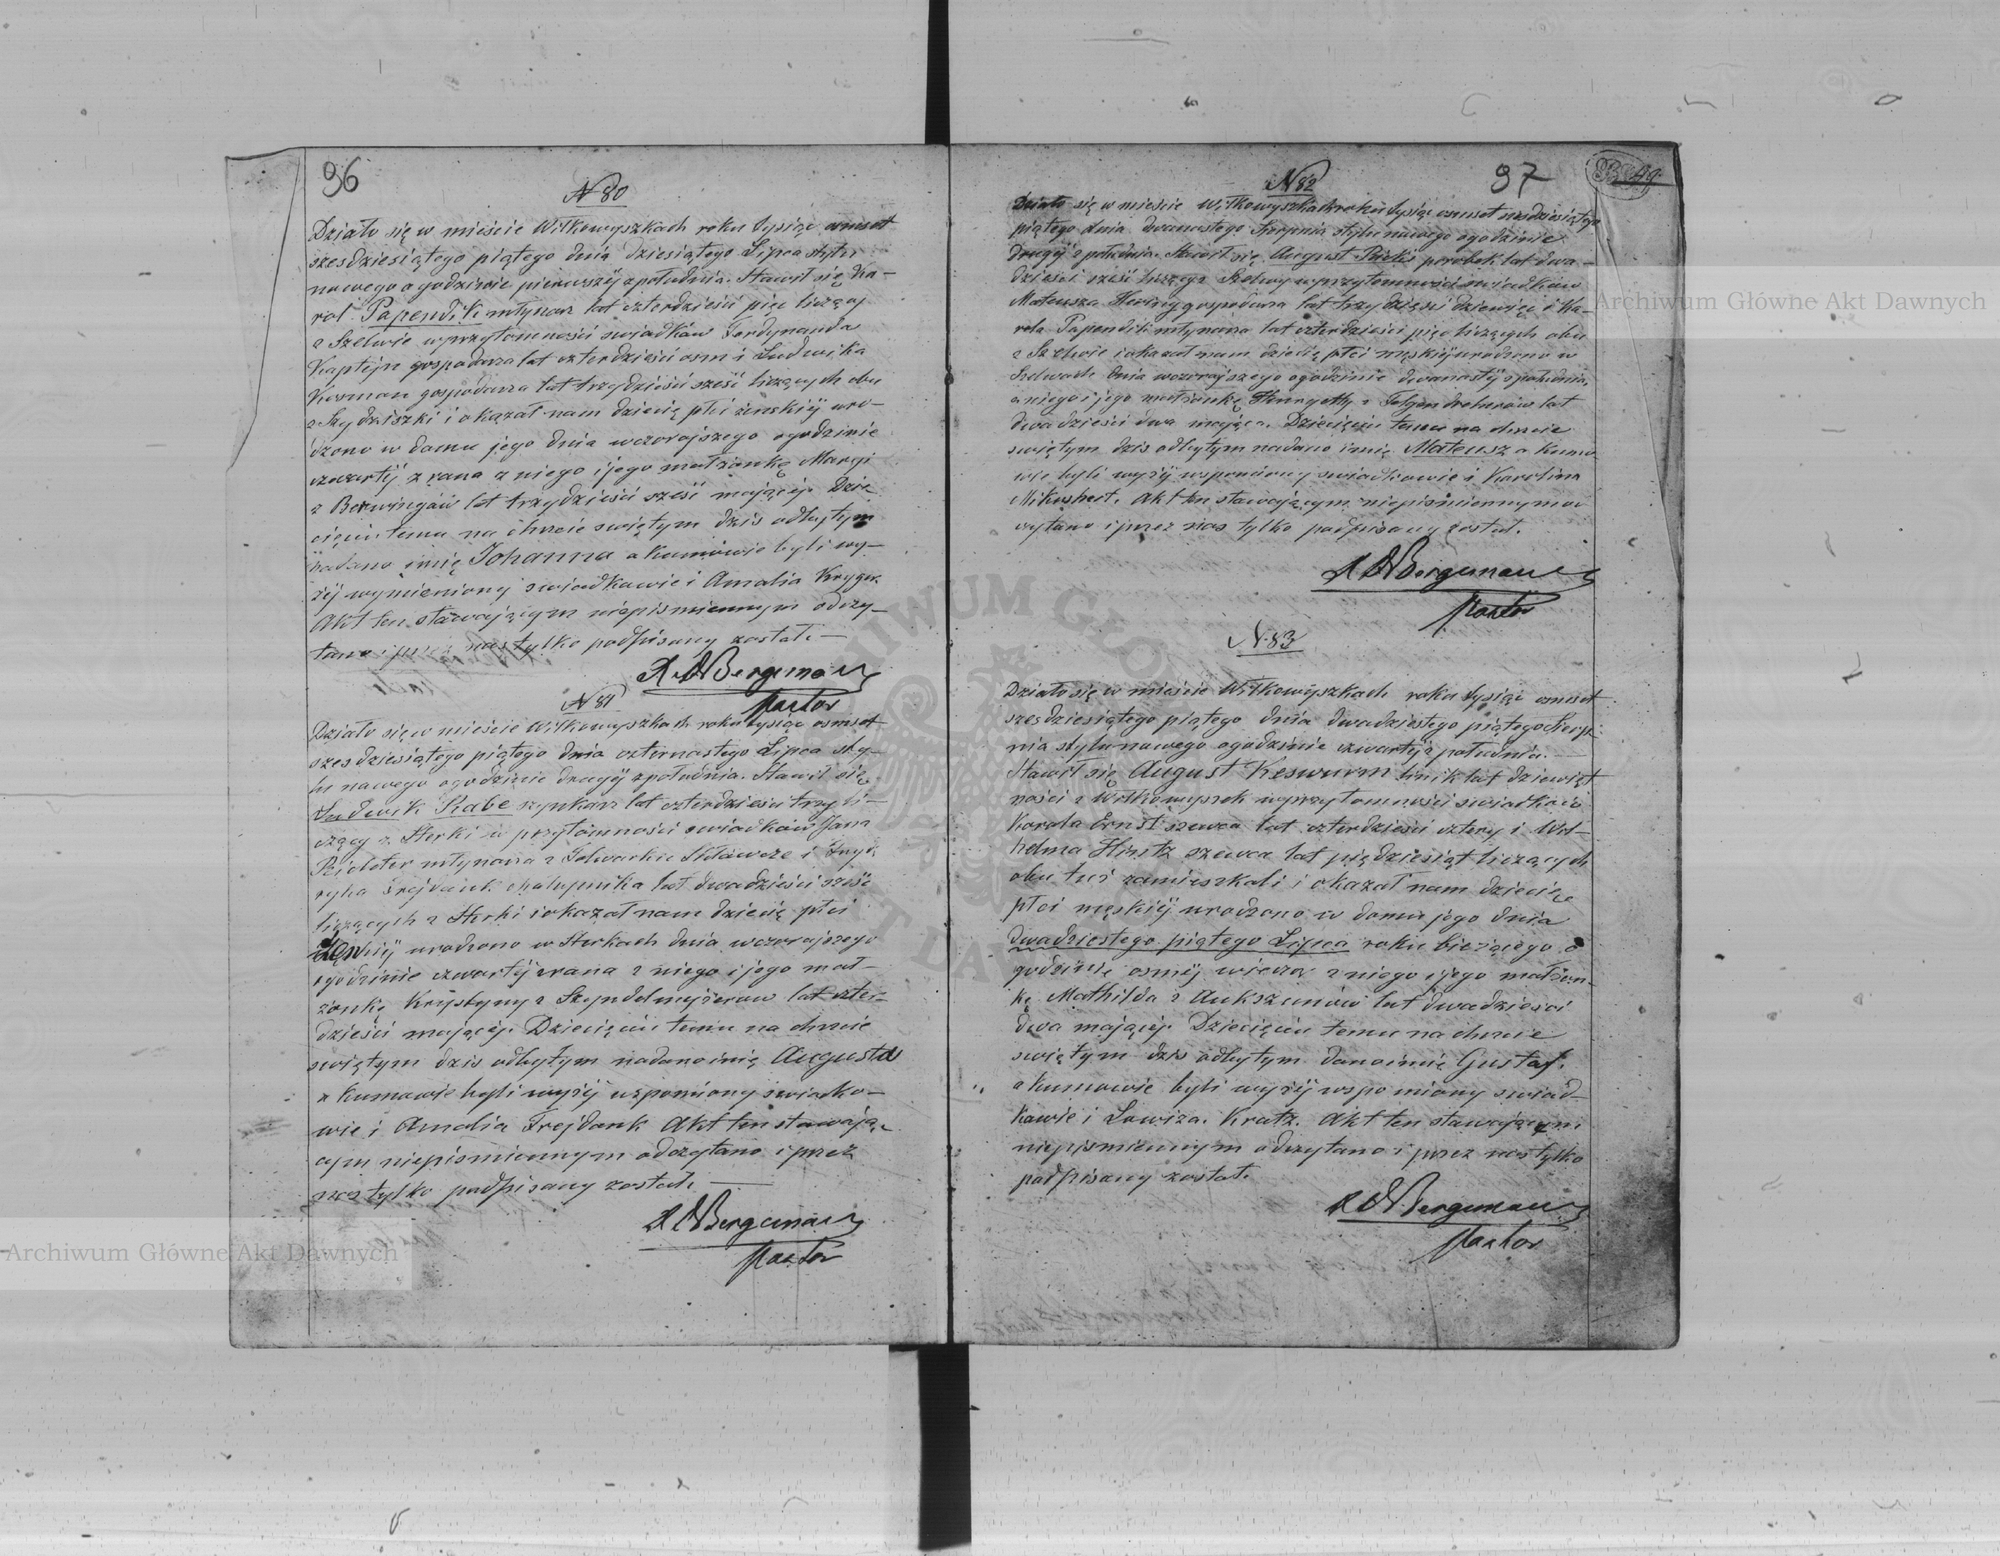 96
N 80
Działo się w mieście Wiłkowyszkach roku tysiąc osmset
szesdziesiątego piątego dnia dziesiątego Lipca stylu
nowego o godzinie pierwszéj z południa. Stawił się Ka-
rol Papendik młynarz lat czterdzieści pięć liczący
z Szelwie w przytomności swiadków Ferdynanda
Kaptejn gospodarza lat czterdzieści osm i Ludwika
gospodarza lat trzydzieści sześć liczących obu
i okazał nam dziecię płci żenskiéj uro-
dzone w domu jego dnia wczorajszego o godzinie
czwartéj z rana z niego i jego małżonkę Maryi
z lat trzydzieści sześć mającéj. Dzie
cięciu temu na chrzcie swiętym dziś odbytym
nadano imię Johanna a kumowie byli wy-
żéj wymieniony swiadkowie i Amalia Kryger.
Akt ten stawającym niepismiennym odczy-
tano i przez nas tylko podpisany został. —
Bergeman
Pastor
N 81
Działo się w mieście Wiłkowyszkach roku tysiąc osmset
szesdziesiątego piątego dnia czternastego Lipca sty-
lu nowego o godzinie drugiéj z południa. Stawił się
Ludwik Szynkarz lat czterdzieści trzy li-
czący z Sterki w przytomności swiadków Jana
Richter młynarza z Folwarku i
ryka Frejdank chałupnika lat dwadzieścia sześć
liczących z Sterki i okazał nam dziecię płci
urodzone w Sterkach dnia wczorajszego
o godzinie czwartéj z rana z niego i jego mał-
żonkę Krystyny z lat czter-
dzieści mającéj. Dziecięciu temu na chrzcie
swiętym dziś odbytym nadano imię Augusta
a kumowie byli wyżéj wspomniony swiadko-
wie i Amalia Frejdank Akt ten stawają-
cym niepismiennym odczytano i przez
nas tylko podpisany został. —
Bergeman
Pastor
N 82
97
Działo się w mieście Wiłkowyszkach roku tysiąc osmset szesdziesiątego
piątego dnia dwunastego Sierpnia stylu nowego o godzinie
drugiéj z południa. Stawił się August parobek lat dwa-
dzieścia sześć liczący z Szelwy w przytomności swiadków
Mateusza gospodarza lat trzydzieści dziewięć i Ka-
rola Papendik młynarza lat czterdzieści pięć liczących obu
z Szelwie i okazał nam dziecię płci męskiéj urodzone w
Szelwach dnia wczorajszego o godzinie dwunastéj z południa,
z niego i jego małżonkę Henryetty z lat
dwadzieścia dwa mająca. Dziecięciu temu na chrzcie
swiętym dziś odbytym nadano imię Mateusz a kumo
wie byli wyżéj wspomniony swiadkowie i Karolina
Akt ten stawającym niepismiennym od
czytano i przez nas tylko podpisany został.
Bergeman
Pastor
N. 83
Działo się w mieście Wiłkowyszkach roku tysiąc osmset
szesdziesiątego piątego dnia dwudziestego piątego Sierp-
nia stylu nowego o godzinie czwartéj z południa. —
Stawił się August Keswurm lat dziewięt
naści z Wiłkowyszek w przytomności swiadków
Karola Ernst szewca lat czterdzieści cztery i Wil-
helma Hintz szewca lat pięćdziesiąt liczących
obu tuż zamieszkali i okazał nam dziecię
płci męskiéj urodzone w domu jego dnia
dwudziestego piątego Lipca roku bieżącego o
godzinie osméj wieczor z niego i jego małżon-
kę Mathilda z lat dwadzieścia
dwa mającéj. Dziecięciu temu na chrzcie
swiętym dziś odbytym dano imię Gustaf.
a kumowie byli wyżéj wspomniony swiad-
kowie i Lowiza. Kratz. Akt ten stawającym
niepismiennym odczytano i przez nas tylko
podpisany został.
Bergeman
Pastor
Archiwum Główne Akt Dawnych
Archiwum Główne Akt Dawnych